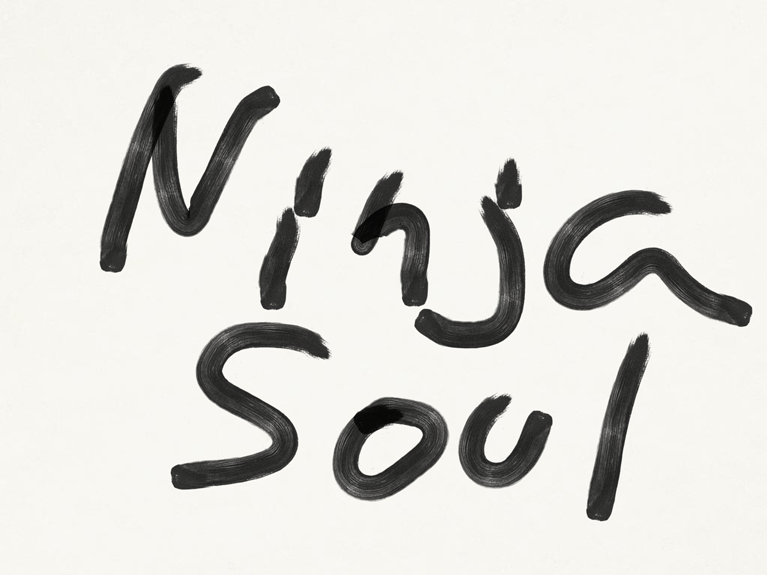 Ninja
Soul